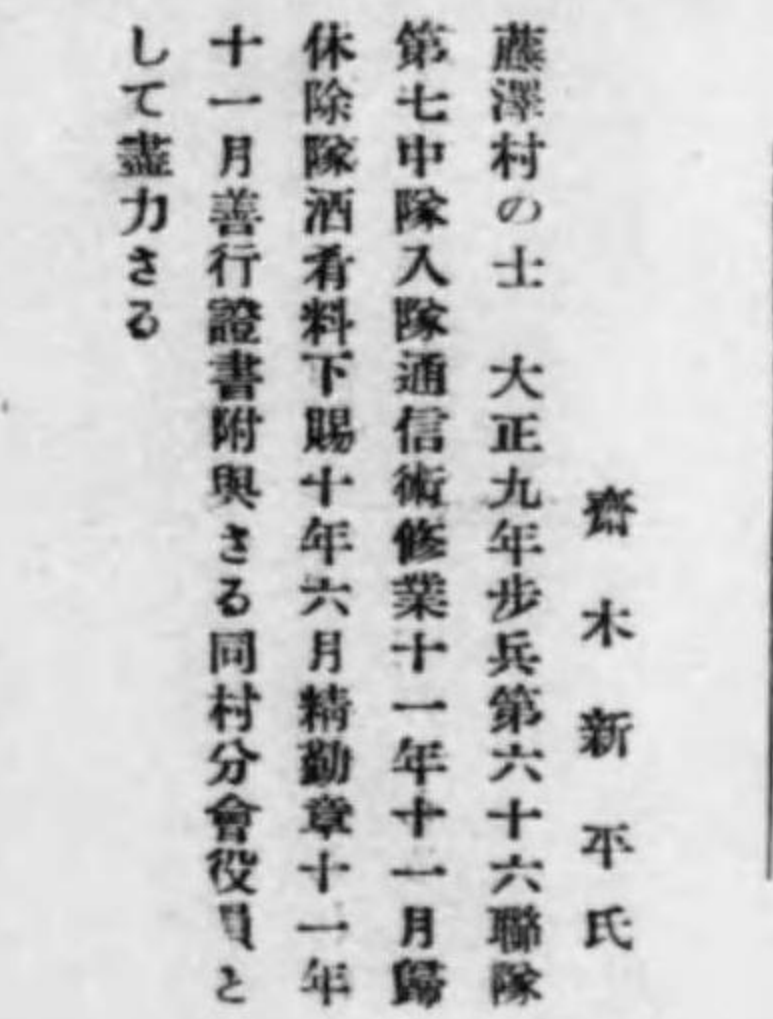 齋木新平氏
藤澤村の士　大正九年步兵第六十六聯隊
第七中隊入隊通信術修業十一年十一月歸
休除隊酒肴料下賜十年六月精勤章十一年
十一月善行證書附與さる同村分會役員と
して盡力さる